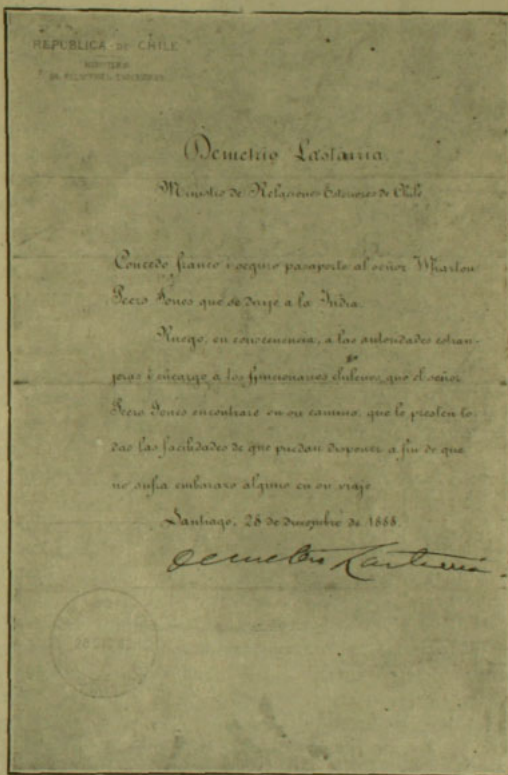 REPÚBLICA DE CHILE
MINISTERIO
DE RELACIONES EXTERIORES
Demetrio Lastarria
Ministro de Relaciones Esteriores de Chile
Concedo franco i seguro pasaporte al señor Wharton
Peers Jones que se dirije a la India.
Ruego, en consecuencia, a las autoridades estran-
jeras i encargo a los funcionarios chilenos, que el señor
Peers Jones encontrare en su camino, que le presten to-
das las facilidades de que puedan disponer a fin de que
no sufra embarazo alguno en su viaje
Santiago, 28 de diciembre de 1888.
Demetrio Lastarria
28 DIC 88